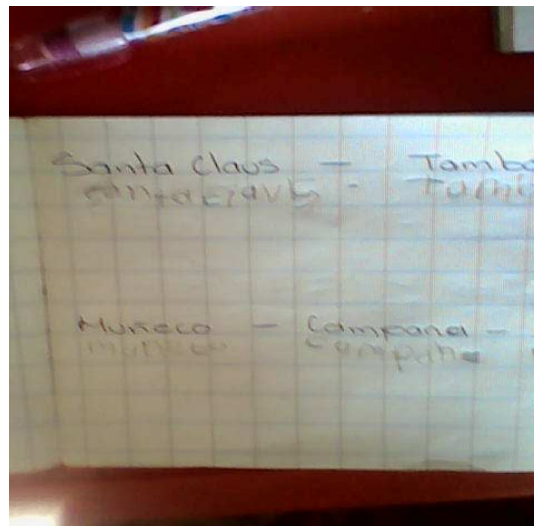 Santa Claus - Tambo
santaclaus -
Muñeco - Campana -
muñeco campana